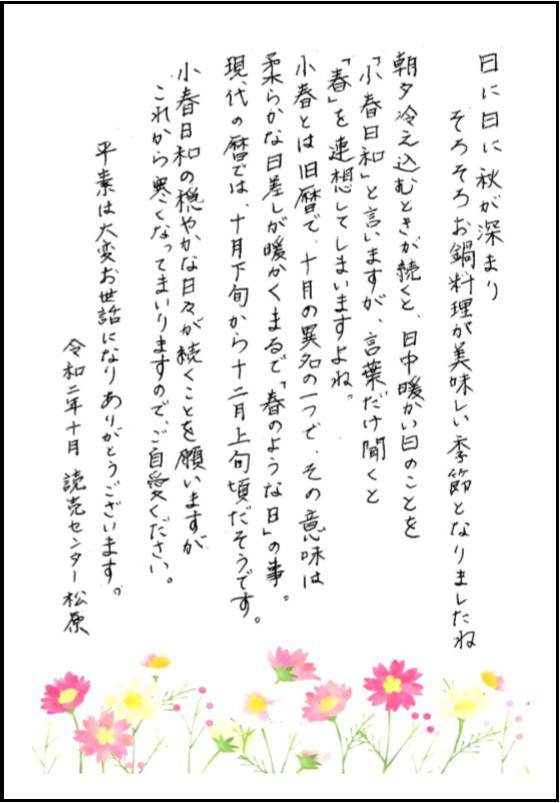 日に日に秋が深まり
そろそろお鍋料理が美味しい季節となりましたね
朝夕冷え込むときが続くと、日中暖かい日のことを
「小春日和」と言いますが、言葉だけ聞くと
「春」を連想してしまいますよね。
小春とは旧暦で、十月の異名の一つで、その意味は
柔らかな日差しが暖かくまるで「春のような日」の事。
現代の暦では、十月下旬から十二月上旬頃だそうです。
小春日和の穏やかな日々が続くことを願いますが
これから寒くなってまいりますので、ご自愛ください。
平素は大変お世話になりありがとうございます。
令和二年十月 読売センター松原